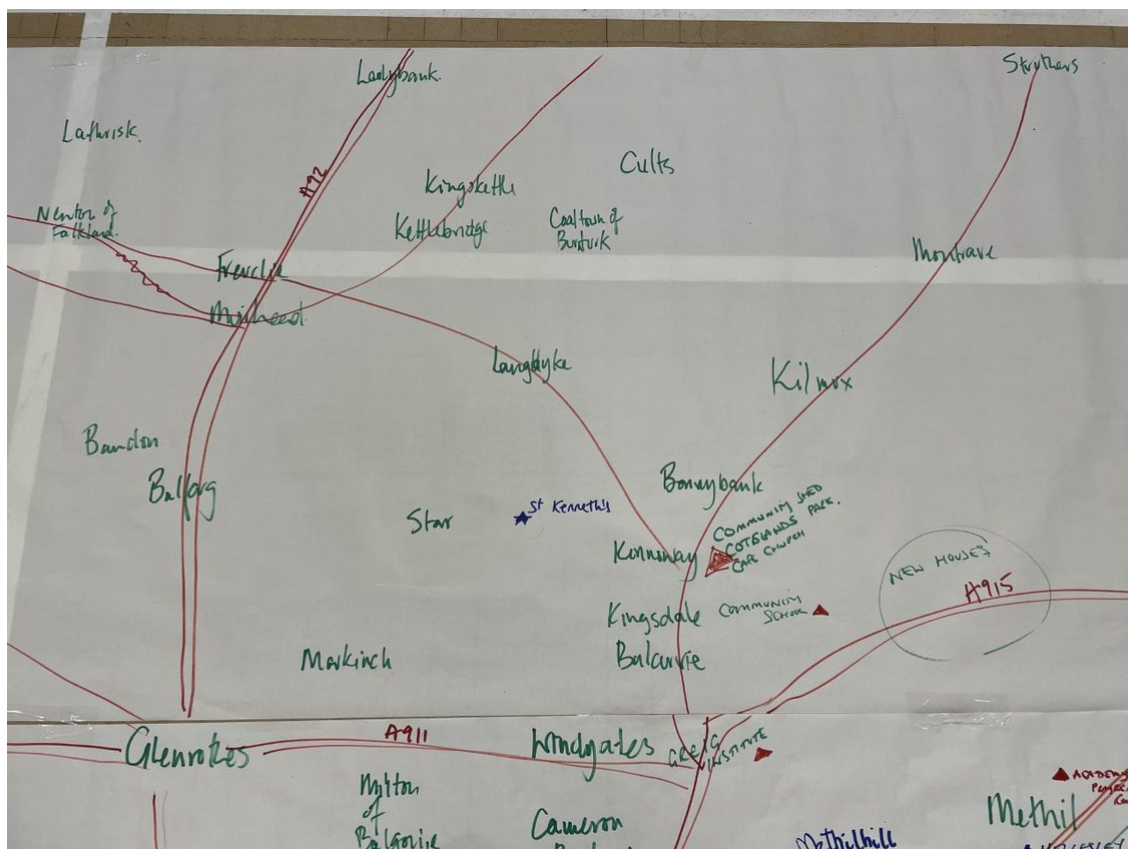 Ladybank.
Struthers
Lathrisk.
A92
Cults
Kingskettle
Newton of
Falkland.
Kettlebridge
Coaltown of
Burturk
Freuchie
Montrave
Muirhead
Langdyke
Kilmux
Bandon
Balfarg
Bonnybank
Star
St Kenneth's
COMMUNITY SHED
COTSLANDS PARK.
CAR CHURCH
Kennoway
NEW HOUSES
A915
Kingsdale
COMMUNITY
SCHOOL
Markinch
Balcurvie
Glenrothes
A911
Windygates
GREIG
INSTITUTE
Milton
of
Balgonie
Cameron
Methilhill
Methil
ACADEMY